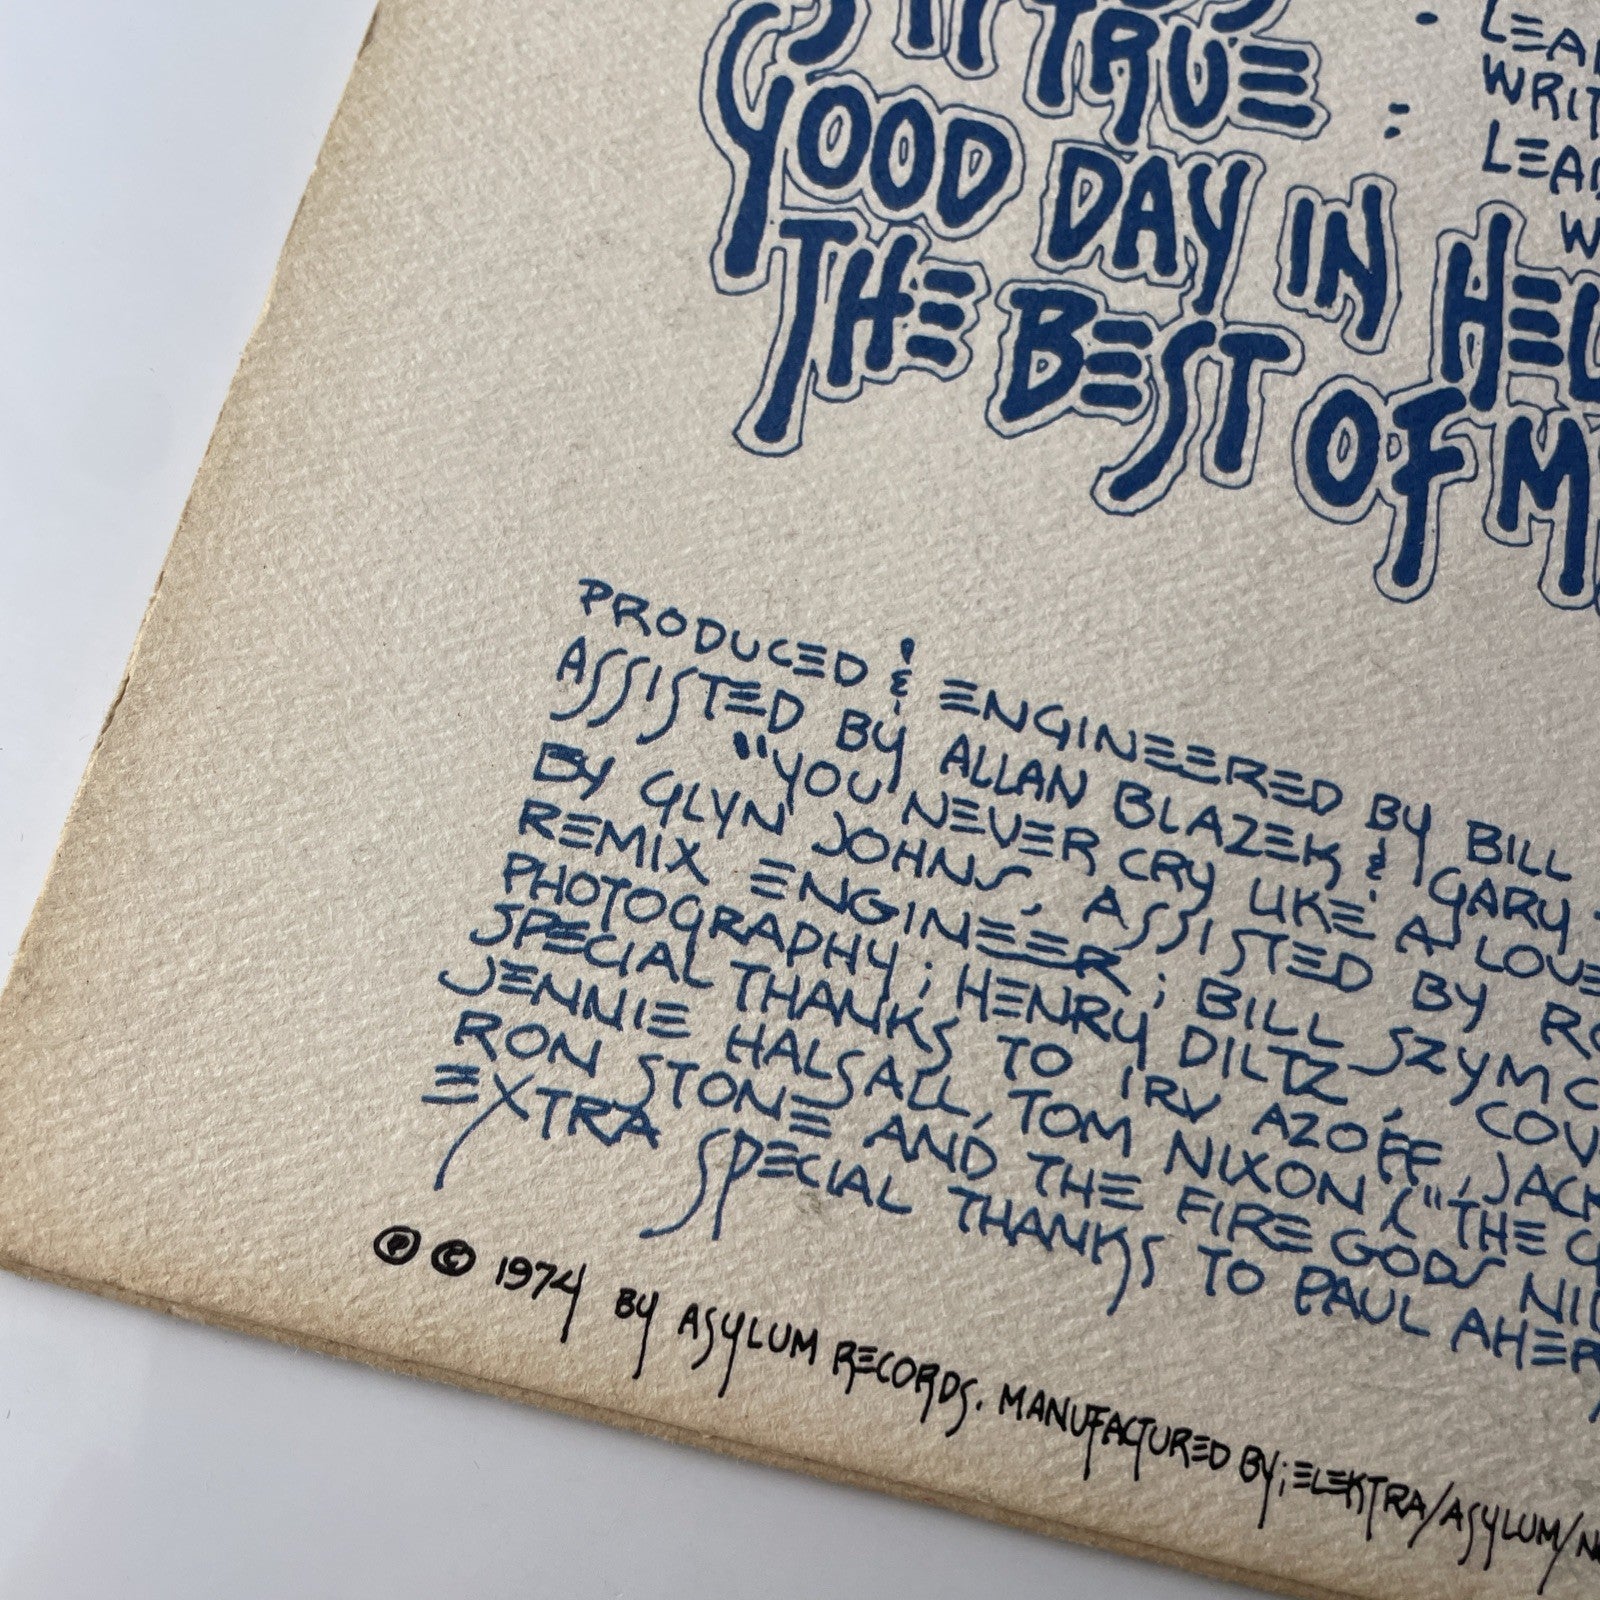 TRUE :
GOOD DAY IN HEL
THE BEST OF M
LEA
WRIT
LEA
W
PRODUCED & ENGINEERED BY BILL
ASSISTED BY ALLAN BLAZEK & GARY
"YOU NEVER CRY LIKE A LOVE
BY GLYN JOHNS, ASSISTED BY RO
REMIX ENGINEER; BILL SZYMC
PHOTOGRAPHY; HENRY DILTZ, COV
SPECIAL THANKS TO IRV AZOFF, JACK
JENNIE HALSALL, TOM NIXON ("THE
RON STONE AND THE FIRE GODS NI
EXTRA SPECIAL THANKS TO PAUL AHER
Ⓟ © 1974 BY ASYLUM RECORDS. MANUFACTURED BY; ELEKTRA/ASYLUM/N